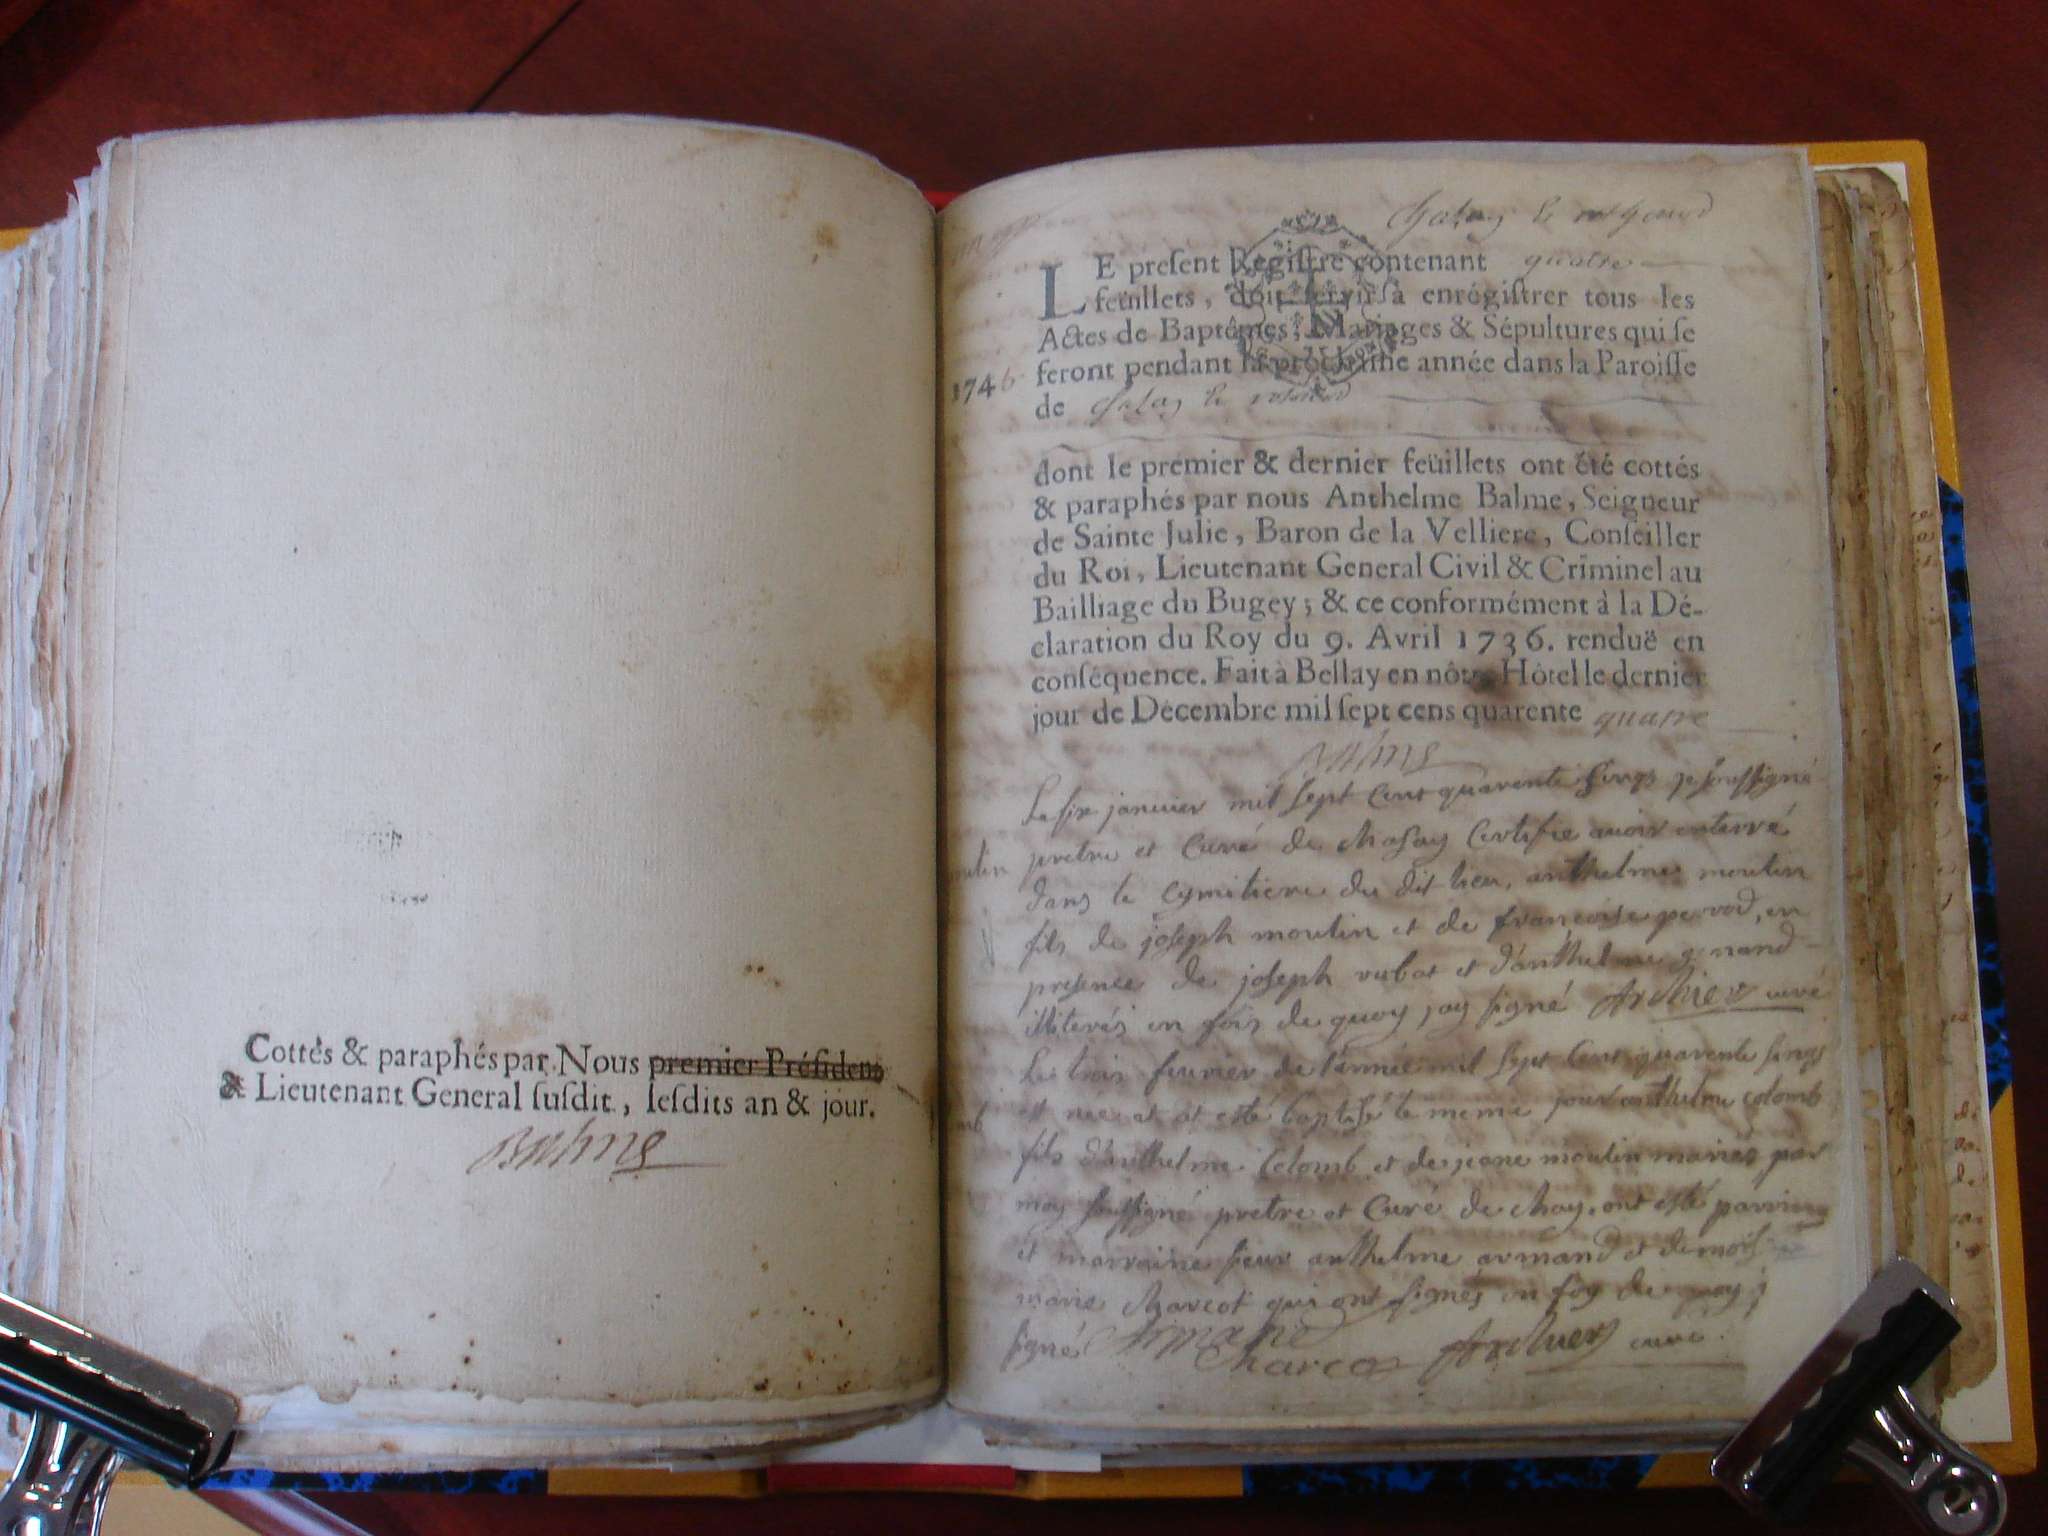 Cottés & paraphés par Nous premier Préſident
& Lieutenant General ſuſdit, leſdits an & jour.
Balme
LE preſent Regiſtre contenant quatre
feüillets, doit ſervir à enrégiſtrer tous les
Actes de Baptêmes, Mariages & Sépultures qui ſe
feront pendant la prochaine année dans la Paroiſſe
174
de
dont le premier & dernier feüillets ont été cottés
& paraphés par nous Anthelme Balme, Seigneur
de Sainte Julie, Baron de la Velliere, Conſeiller
du Roi, Lieutenant General Civil & Criminel au
Bailliage du Bugey; & ce conformément à la Dé-
claration du Roy du 9. Avril 1736. renduë en
conſéquence. Fait à Bellay en nôtre Hôtel le dernier
jour de Décembre mil ſept cens quarente quatre
Balme
Le six janvier mil sept cent quarente cinq je soussigné
pretre et curé de Chasay certifie avoir enterré
dans le cymitiere du dit lieu, anthelme moulin
fils de joseph moulin et de françoise pervod, en
presence de joseph rubat et d'anthelme genand
illiterés en fois de quoy jay signé Archier curé
Le trois fevrier de l'année mil sept cent quarente cinq
est né et at esté baptisé le meme jour anthelme colomb
fils d'anthelme Colomb et de jeane moulin mariés par
moy soussigné pretre et curé de Chay, ont esté parrin
et marraine sieur anthelme armand et demois
marie Charcot qui ont signés en foy de quoy j
signé Armand Charcot Archier curé